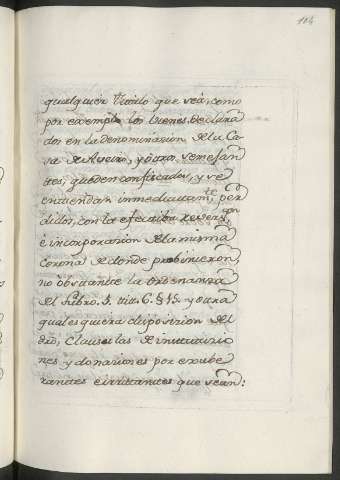 104
qualquier Titulo que sea, como
por exemplo los bienes declara
dos en la denominasion de la Ca
sa de Aveiro, y otros semejan
tes, queden confiscados, y se
entiendan inmediatam.te per
didos, con la efectiva revers.on
e incorporasion de la misma
Corona de donde probinieron,
no obstante la ordenanza
del Libro. 5. titt. 6. § 15. y otra
qualesquiera disposision del
dro, Clausulas de instituisio
nes y donasiones por exube
rantes e irritantes que sean: